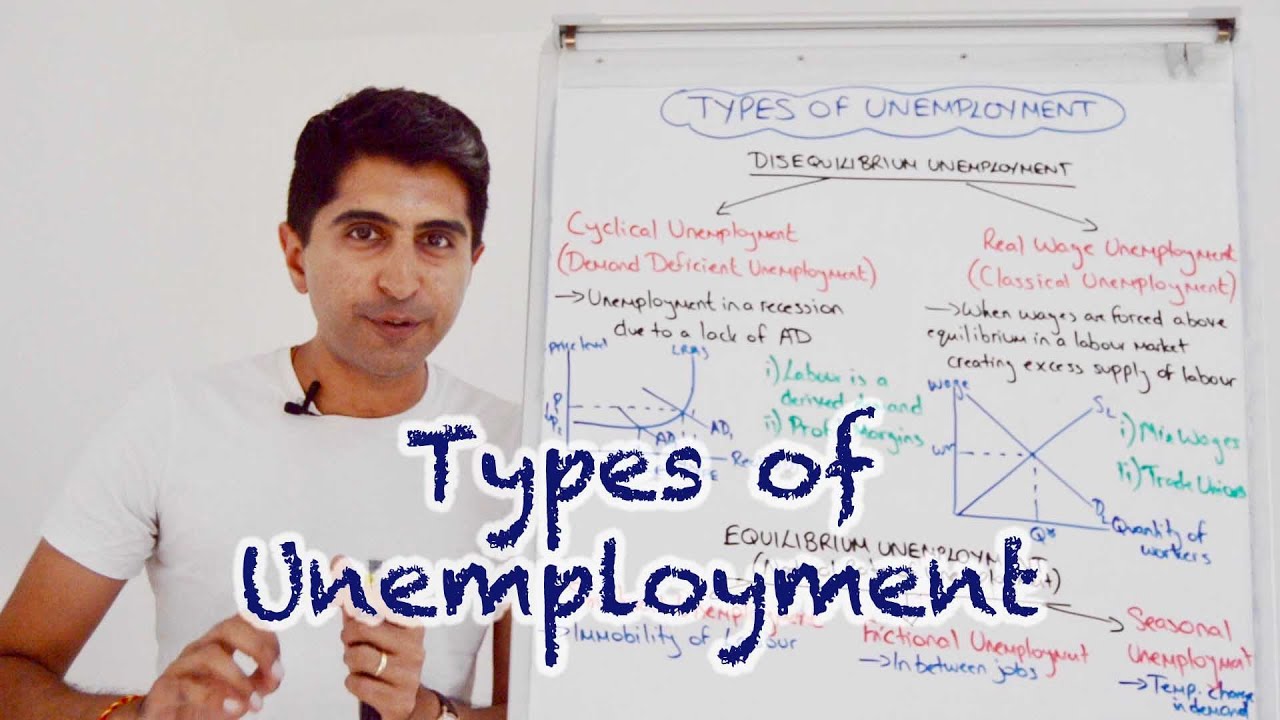 TYPES OF UNEMPLOYMENT
DISEQUILIBRIUM UNEMPLOYMENT
Cyclical Unemployment
(Demand Deficient Unemployment)
→ Unemployment in a recession
due to a lack of AD
Price level
LRAS
P
P₂
AD₁
AD
Re
E
i) Labour is a
derived
and
ii) Prof
Margins
Real Wage Unemployment
(Classical Unemployment)
→ When wages are forced above
equilibrium in a labour market
creating excess supply of labour
Wage
SL
W*
DL
Q*
Quantity of
workers
i) Min Wages
ii) Trade Unions
Types of
Unemployment
EQUILIBRIUM UNEMPLOYMENT
→ Immobility of
Frictional Unemployment
→ In between jobs
Seasonal
Unemployment
→ Temp. change
in demand